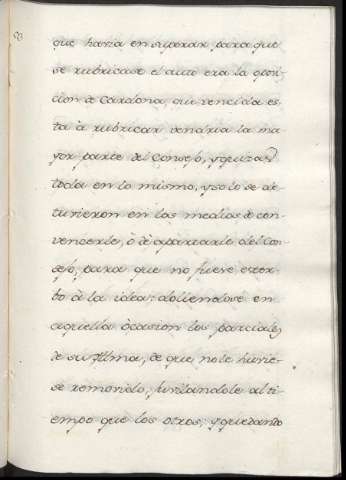 53
que havia en superar para que
se rubricase el auto era la oposi-
cion de Cardona, qui vencida es-
ta à rubricar vendria la ma-
yor parte del Consejo, y quizas
toda en lo mismo, y solo se de-
tuvieron en las medias de con-
vencerle, ò de apartarle del Con-
sejo, para que no fuese estor-
bo à la idea: doliendose en
aquella òcasion los parciales
de su Illma, de que no le huvie-
se removido, jubilandole al ti-
empo que los otros; y quedando